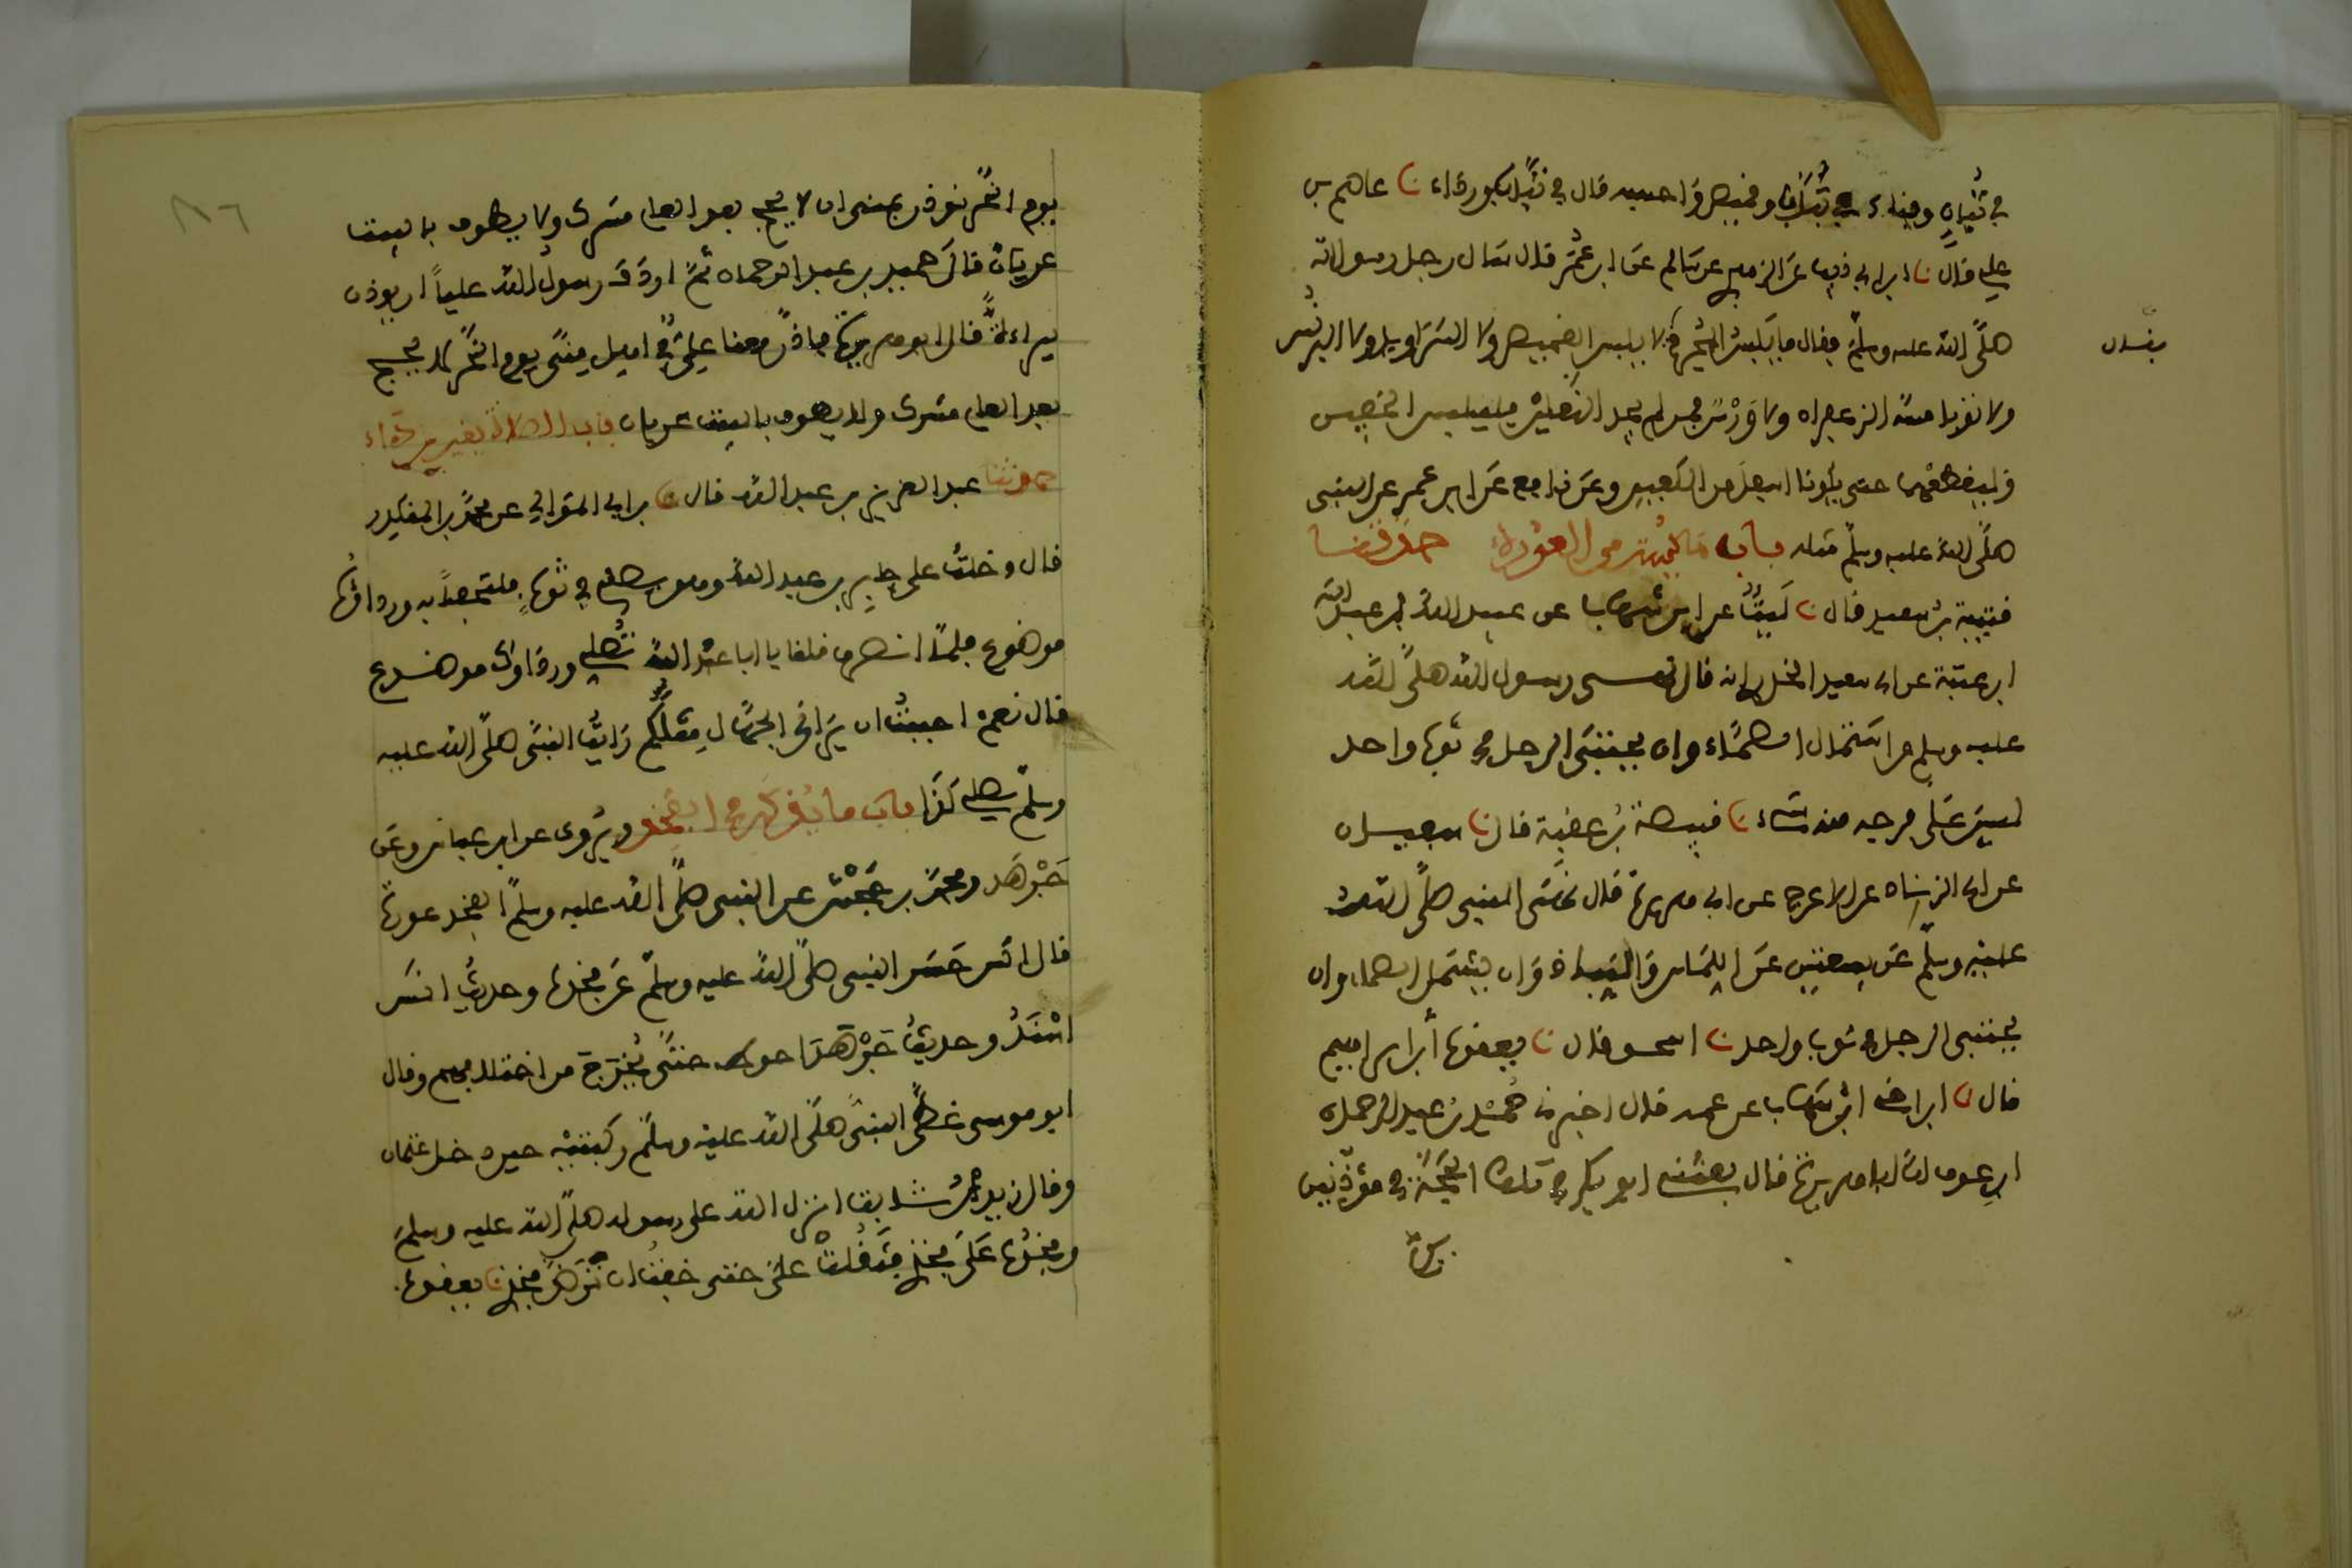 في تبان وقباء في تبان وقميص واحسبه قال في تبان ورداء نا عاصم بن
علي قال نا ابن ابي ذيب عن الزهري عن سالم عن ابن عمر قال سال رجل رسول الله
صلى الله عليه وسلم فقال ما يلبس المحرم فقال لا يلبس القميص ولا السراويل ولا البرنس
فقال
ولا ثوبا مسه الزعفران ولا ورس فمن لم يجد النعلين فليلبس الخفين
وليقطعهما حتى يكونا اسفل من الكعبين وعن نافع عن ابن عمر عن النبي
صلى الله عليه وسلم مثله باب ما يستر من العورة حدثنا
قتيبة بن سعيد قال نا ليث عن ابن شهاب عن عبيد الله بن عبد الله
ابن عتبة عن ابي سعيد الخدري انه قال نهى رسول الله صلى الله
عليه وسلم عن اشتمال الصماء وان يحتبي الرجل في ثوب واحد
ليس على فرجه منه شيء نا قبيصة بن عقبة قال نا سفيان
عن ابي الزناد عن الاعرج عن ابي هريرة قال نهى النبي صلى الله
عليه وسلم عن بيعتين عن اللماس والنباذ وان يشتمل الصماء وان
يحتبي الرجل في ثوب واحد نا اسحق قال نا يعقوب بن ابراهيم
قال نا ابن اخي ابن شهاب عن عمه قال اخبرني حميد بن عبد الرحمن
ابن عوف ان ابا هريرة قال بعثني ابو بكر في تلك الحجة في مؤذنين
يوم
١٦
يوم النحر نوذن بمنى ان لا يحج بعد العام مشرك ولا يطوف بالبيت
عريان قال حميد بن عبد الرحمان ثم اردف رسول الله عليا ان يوذن
ببراءة قال ابو هريرة فاذن معنا علي في اهل منى يوم النحر لا يحج
بعد العام مشرك ولا يطوف بالبيت عريان باب الصلاة بغير رداء
حدثنا عبد العزيز بن عبد الله قال نا بن ابي الموالي عن محمد بن المنكدر
قال دخلت على جابر بن عبد الله وهو يصلي في ثوب ملتحفا به ورداؤه
موضوع فلما انصرف قلنا يا ابا عبد الله تصلي ورداوك موضوع
قال نعم احببت ان يراني الجهال مثلكم رايت النبي صلى الله عليه
وسلم يصلي كذا باب ما يذكر في الفخذ ويروى عن ابن عباس وعن
جرهد ومحمد بن جحش عن النبي صلى الله عليه وسلم الفخذ عورة
قال انس حسر النبي صلى الله عليه وسلم عن فخذه وحديث انس
اسند وحديث جرهد احوط حتى يخرج من اختلافهم وقال
ابو موسى غطى النبي صلى الله عليه وسلم ركبتيه حين دخل عثمان
وقال زيد بن ثابت انزل الله على رسوله صلى الله عليه وسلم
وفخذه على فخذي فثقلت علي حتى خفت ان ترض فخذي نا يعقوب